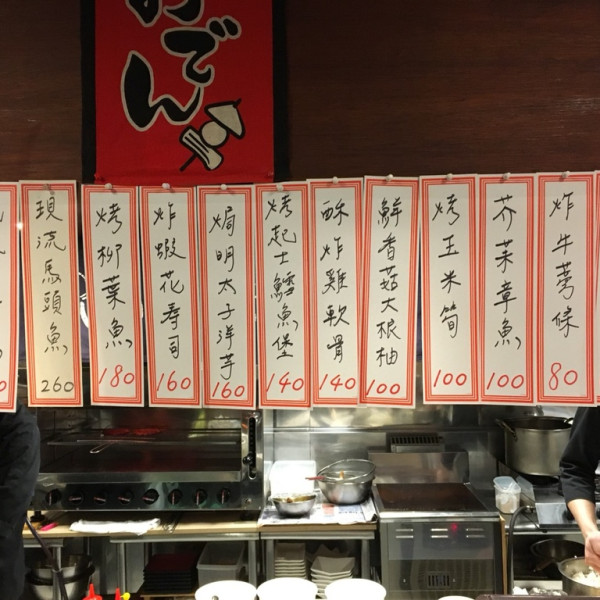 おでん
現流馬頭魚
260
烤柳葉魚
180
炸蝦花壽司
160
焗明太子洋芋
160
烤起士鱈魚堡
140
酥炸雞軟骨
140
鮮香菇大根柚
100
烤玉米筍
100
芥茉章魚
100
炸牛蒡條
80